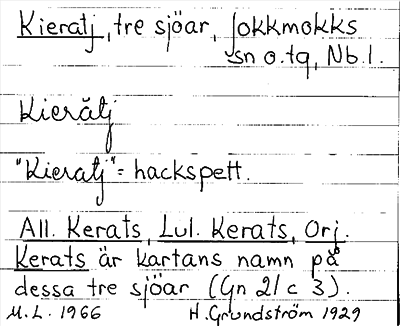 Kieratj, tre sjöar, Jokkmokks
sn o.tg, Nb.l.
Kierătj
"Kieratj" = hackspett.
All. Kerats, Lul. Kerats, Orj.
Kerats är kartans namn på
dessa tre sjöar (Gn 21 c 3).
M.L. 1966 H. Grundström 1929